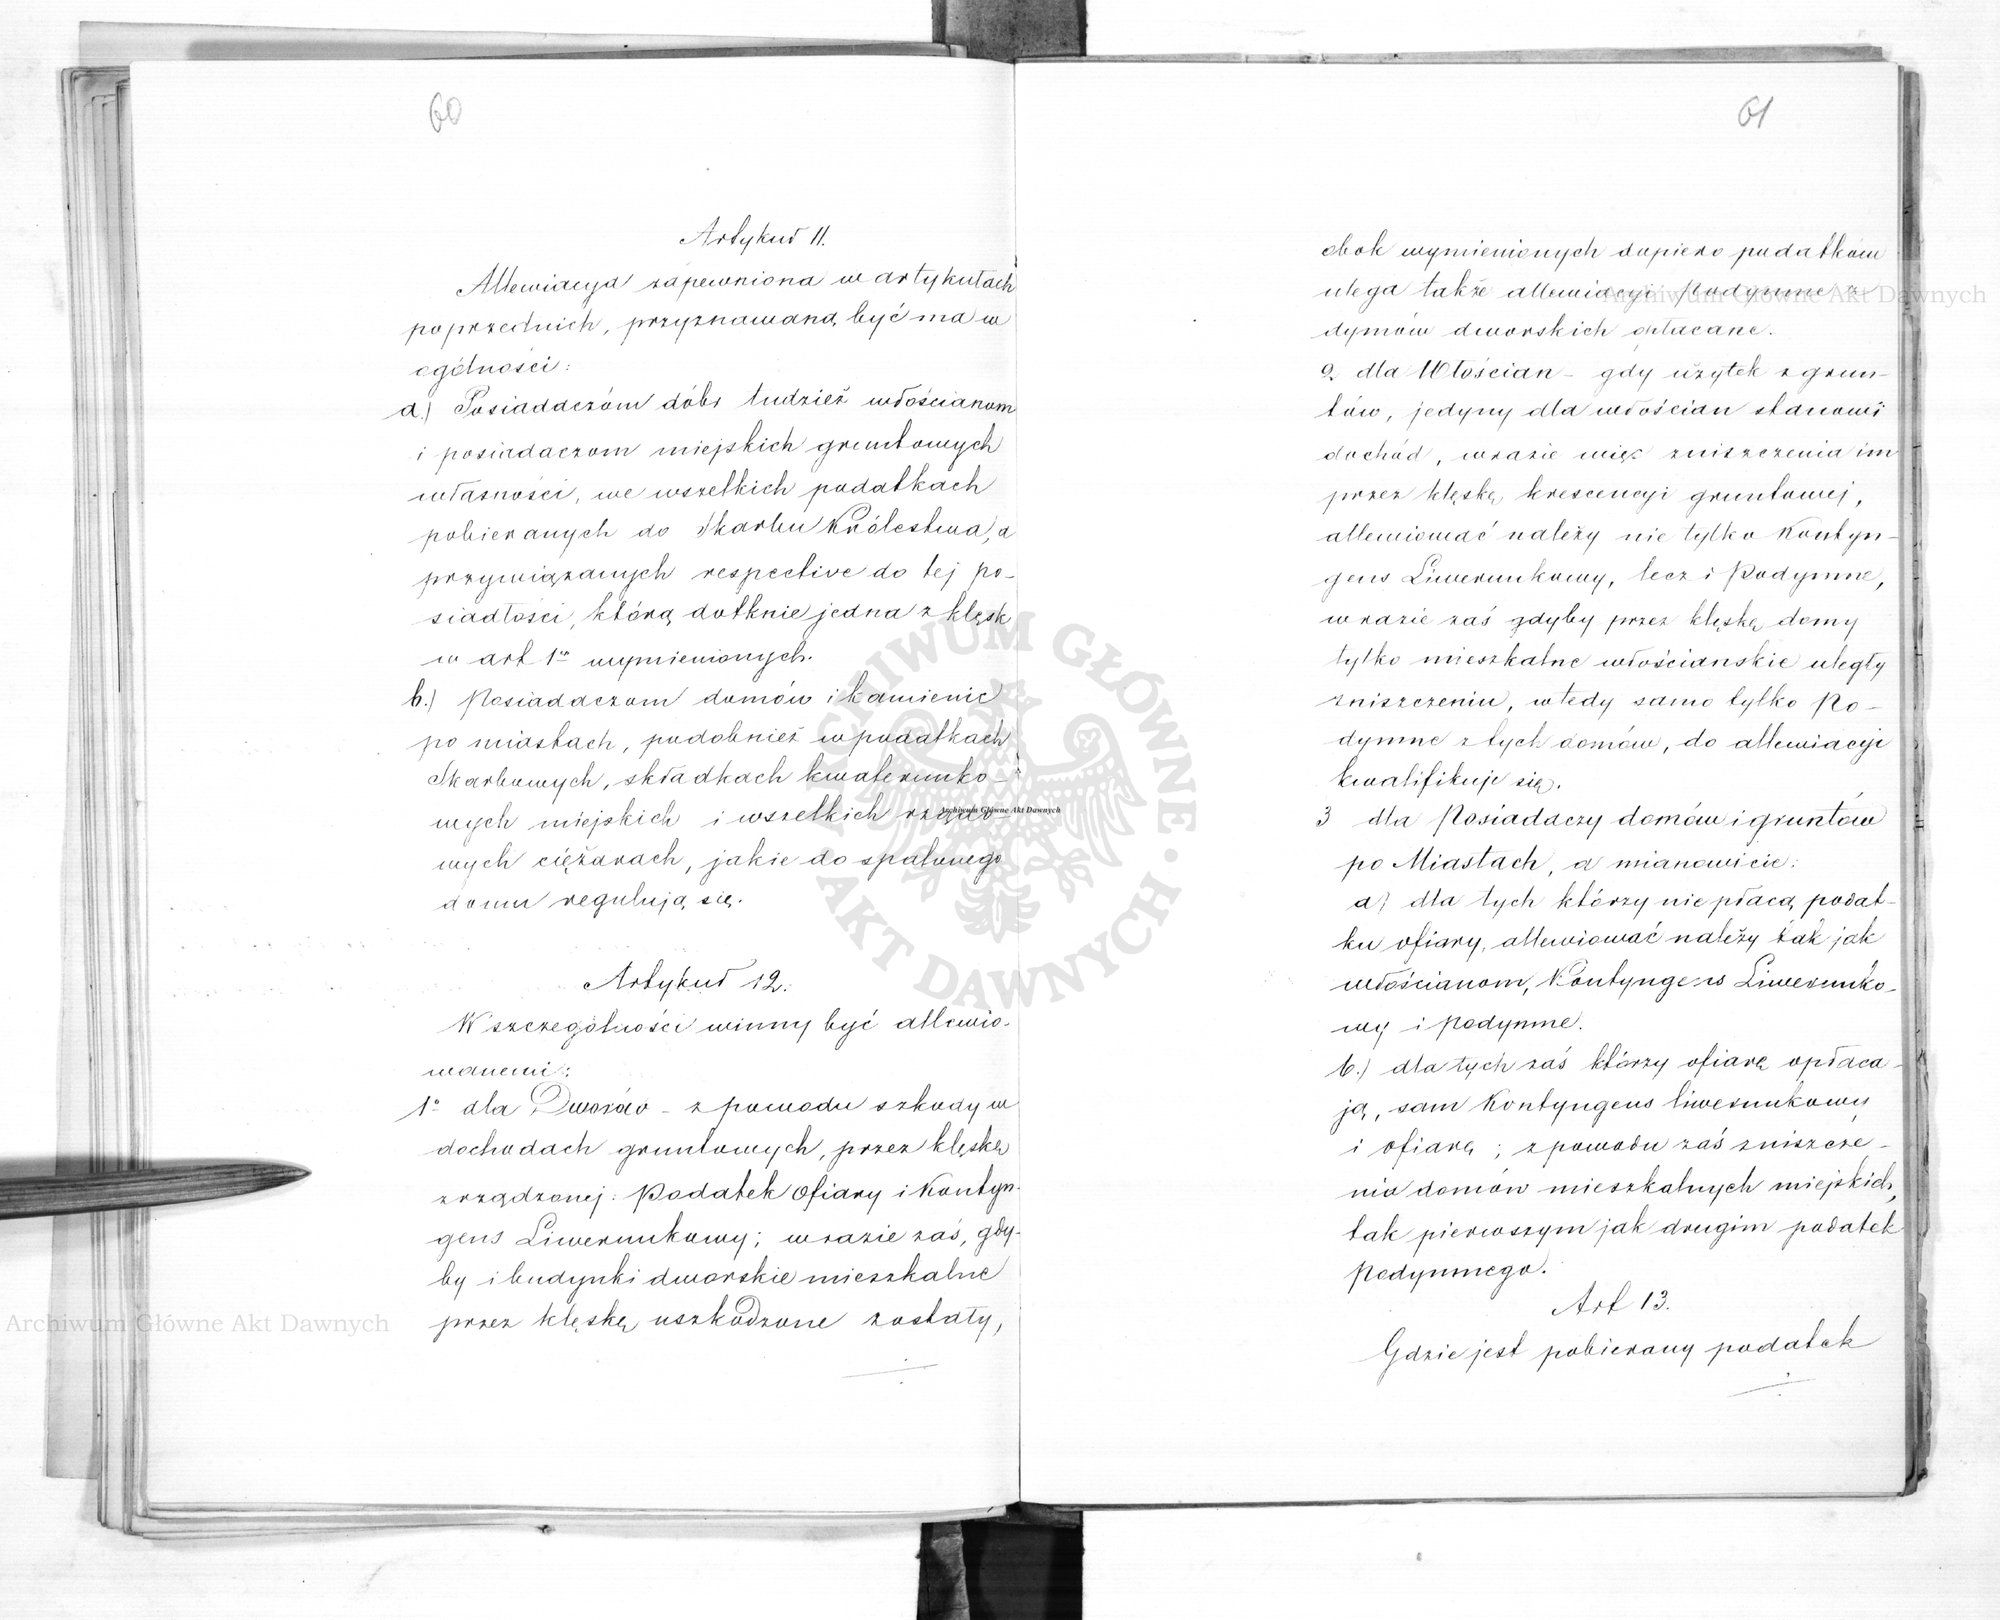 60
Artykuł 11.
Allewiacya zapewniona w artykułach
poprzednich, przyznawaną być ma w
ogólności:
a.) Posiadaczóm dóbr tudzież włościanom
i posiadaczom miejskich gruntowych
własności, we wszelkich podatkach
pobieranych do Skarbu Królestwa, a
przywiązanych respective do tej po-
siadłości, którą dotknie jedna z klęsk
w art 1ym wymienionych.
b.) Posiadaczom domów i kamienic
po miastach, podobnież w podatkach
Skarbowych, składkach kwaterunko-
wych miejskich i wszelkich rządo-
wych ciężarach, jakie do spalonego
domu regulują się.
Artykuł 12.
W szczególności winny być allewio-
wanemi:
1o dla Dworów - z powodu szkody w
dochodach gruntowych, przez klęskę
zrządzonej: Podatek Ofiary i Kontyn-
gens Liwerunkowy; w razie zaś, gdy-
by i budynki dworskie mieszkalne
przez klęskę uszkodzone zostały,
61
obok wymienionych dopiero podatków
ulega także allewiacyi Podymne z
dymów dworskich opłacane.
2. dla Włościan - gdy użytek z grun-
tów, jedyny dla włościan stanowi
dochód, w razie więc zniszczenia im
przez klęskę krescencyi gruntowej,
allewiować należy nie tylko Kontyn-
gens Liwerunkowy, lecz i Podymne,
w razie zaś gdyby przez klęskę domy
tylko mieszkalne włościanskie uległy
zniszczeniu, wtedy samo tylko Po-
dymne z tych domów, do allewiacyi
kwalifikuje się.
3 dla Posiadaczy domów i gruntów
po Miastach, a mianowicie:
a) dla tych którzy nie płacą podat-
ku ofiary, allewiować należy tak jak
włościanom, Kontyngens Liwerunko-
wy i Podymne.
b.) dla tych zaś którzy ofiarę opłaca-
ją, sam Kontyngens liwerunkowy
i ofiarę; z powodu zaś zniszcze-
nia domów mieszkalnych miejskich,
tak pierwszym jak drugim podatek
Podymnego.
Art 13.
Gdzie jest pobierany podatek
ARCHIWUM GŁÓWNE • AKT DAWNYCH •
Archiwum Główne Akt Dawnych
Archiwum Główne Akt Dawnych
Archiwum Główne Akt Dawnych